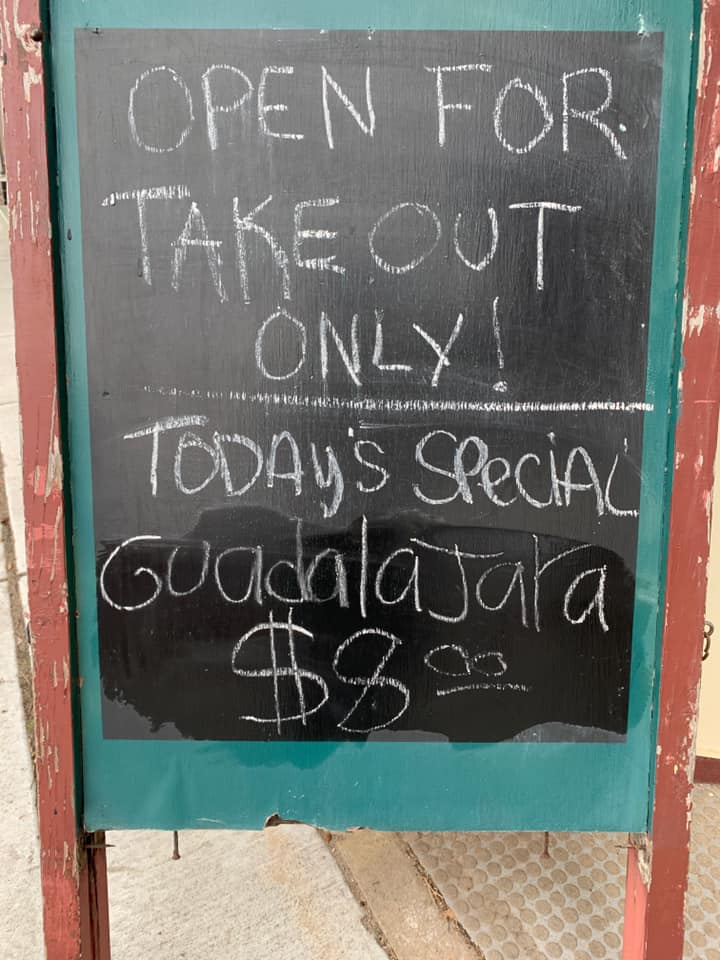 OPEN FOR
TAKE OUT
ONLY!
TODAY'S SPECIAL
GUadalaJara
$8.00